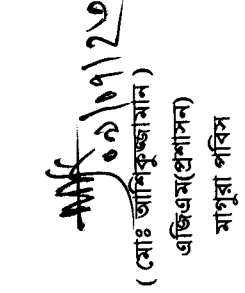 ০৯/০৭/২৩
( মোঃ আশিকুজ্জামান )
এজিএম(প্রশাসন)
মাগুরা পবিস